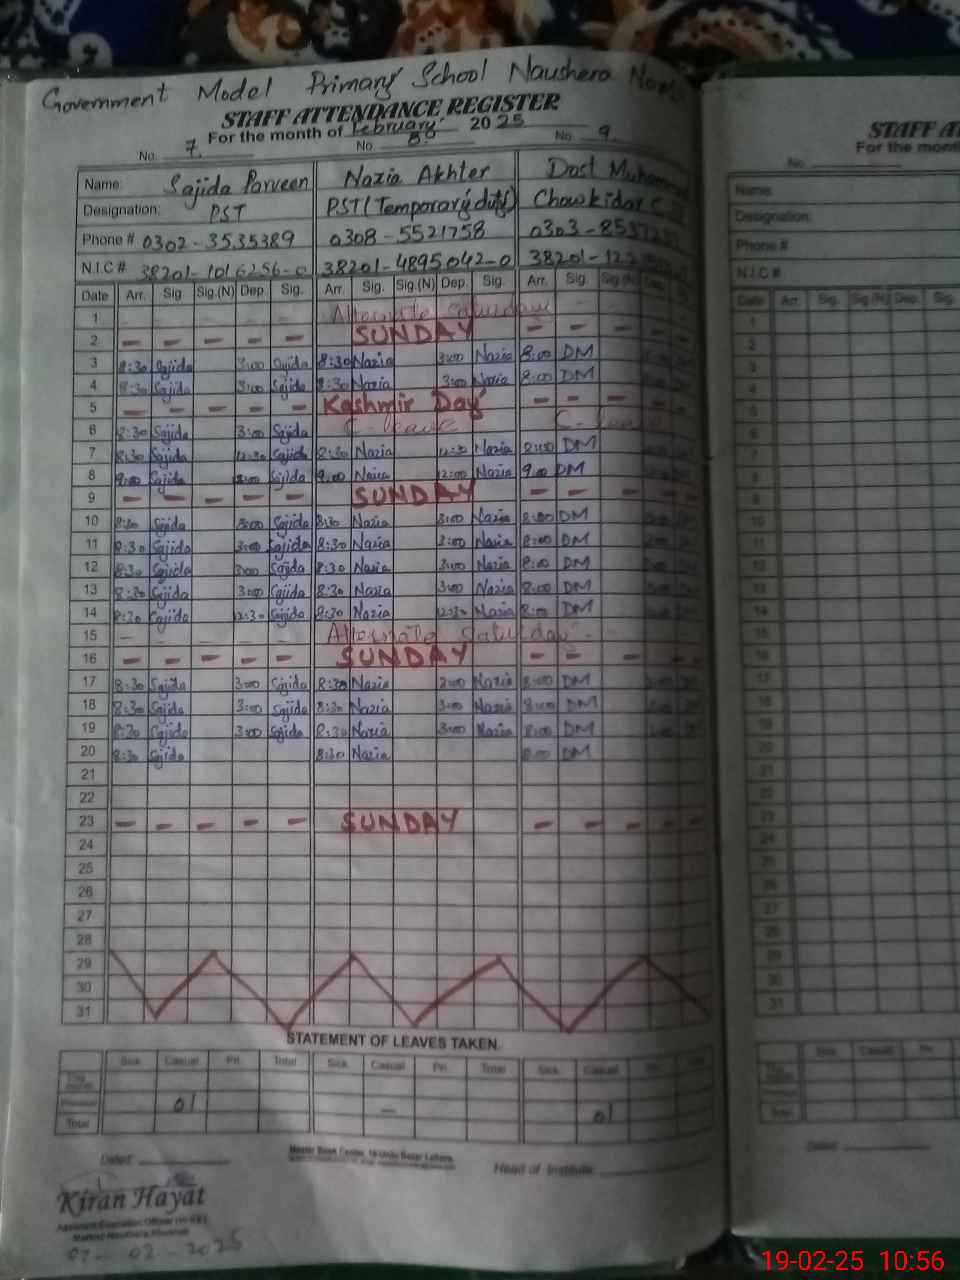 Government Model Primary School Naushera
STAFF ATTENDANCE REGISTER
For the month of February 2025
No. 7 No. 8 No. 9
Name: Sajida Parveen Nazia Akhter Dost
Designation: PST PST (Temporary duty) Chowkidar
Phone # 0302-3535389 0308-5521758 0303-
N.I.C # 38201-1016256-0 38201-4895042-0 38201-
Date Arr. Sig. Sig.(N) Dep. Sig. Arr. Sig. Sig.(N) Dep. Sig. Arr. Sig. Sig.(N) Dep.
1 Alternate Saturday
2 — — — — — SUNDAY — — — —
3 8:30 Sajida 3:00 Sajida 8:30 Nazia 3:00 Nazia 8:00 DM
4 8:30 Sajida 3:00 Sajida 8:30 Nazia 3:00 Nazia 8:00 DM
5 — — — — — Kashmir Day — — — —
6 8:30 Sajida 3:00 Sajida C-leave C-leave
7 8:30 Sajida 12:30 Sajida 8:30 Nazia 12:30 Nazia 8:00 DM
8 9:00 Sajida 12:00 Sajida 9:00 Nazia 12:00 Nazia 9:00 DM
9 — — — — — SUNDAY — — — —
10 8:30 Sajida 3:00 Sajida 8:30 Nazia 3:00 Nazia 8:00 DM
11 8:30 Sajida 3:00 Sajida 8:30 Nazia 3:00 Nazia 8:00 DM
12 8:30 Sajida 3:00 Sajida 8:30 Nazia 3:00 Nazia 8:00 DM
13 8:30 Sajida 3:00 Sajida 8:30 Nazia 3:00 Nazia 8:00 DM
14 8:30 Sajida 12:30 Sajida 8:30 Nazia 12:30 Nazia 8:00 DM
15 Alternate Saturday
16 — — — — — SUNDAY — — —
17 8:30 Sajida 3:00 Sajida 8:30 Nazia 3:00 Nazia 8:00 DM
18 8:30 Sajida 3:00 Sajida 8:30 Nazia 3:00 Nazia 8:00 DM
19 8:30 Sajida 3:00 Sajida 8:30 Nazia 3:00 Nazia 8:00 DM
20 8:30 Sajida 8:30 Nazia 8:00 DM
21
22
23 — — — — — SUNDAY — — — —
24
25
26
27
28
29
30
31
STATEMENT OF LEAVES TAKEN.
Sick Casual Pri. Total Sick Casual Pri. Total Sick Casual
Previous 01 — 01
Total
Dated: Master Book Center, 19-Urdu Bazar Lahore. Head of Institute:
Kiran Hayat
Assistant Education Officer
07-02-2025
STAFF
For the month
No.
Name:
Designation:
Phone #
N.I.C #
Date Arr. Sig. Sig.(N) Dep. Sig.
19-02-25 10:56